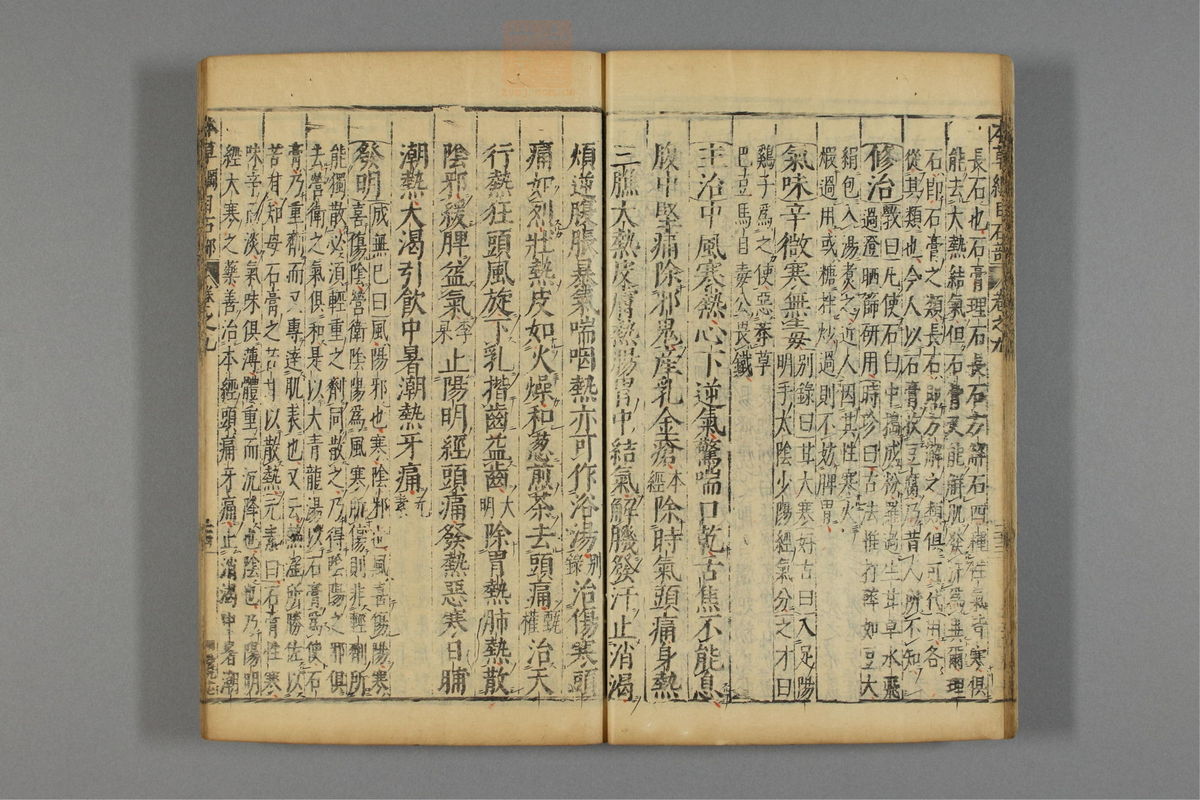 本草綱目石部 卷之九
長石也石膏理石長石方解石四種性氣皆寒俱
能去大熱結氣但石膏又能解肌發汗爲異爾理
石即石膏之類長石即方解之類俱可代用各
從其類也今人以石膏收豆腐乃昔人所不知
修治 斆曰凡使石臼中搗成粉羅過生甘草水飛
過澄晒篩研用時珍曰古法惟打碎如豆大
絹包入湯煮之近人因其性寒火
煅過用或糖拌炒過則不妨脾胃
氣味辛微寒無毒 別錄曰甘大寒好古曰入足陽
明手太陰少陽經氣分之才曰
雞子爲之使惡莽草
巴豆馬目毒公畏鐵
主治中風寒熱心下逆氣驚喘口乾舌焦不能息
腹中堅痛除邪鬼產乳金瘡本經除時氣頭痛身熱
三膲大熱皮膚熱腸胃中結氣解肌發汗止消渴
煩逆腹脹暴氣喘咽熱亦可作浴湯別錄治傷寒頭
痛如烈壯熱皮如火燥和葱煎茶去頭痛甄權治天
行熱狂頭風旋下乳揩齒益齒大明除胃熱肺熱散
陰邪緩脾益氣李杲止陽明經頭痛發熱惡寒日晡
潮熱大渴引飲中暑潮熱牙痛元素
發明 成無已曰風陽邪也寒陰邪也風喜傷陽寒
喜傷陰營衛陰陽爲風寒所傷則非輕劑所
能獨散必須輕重之劑同散之乃得陰陽之邪俱
去營衛之氣俱和是以大青龍湯以石膏爲使石
膏乃重劑而又專達肌表也又云熱淫所勝佐以
苦甘知母石膏之苦甘以散熱元素曰石膏性寒
味辛而淡氣味俱薄體重而沉降也陰也乃陽明
經大寒之藥善治本經頭痛牙痛止消渴中暑潮
本草綱目石部 卷之九